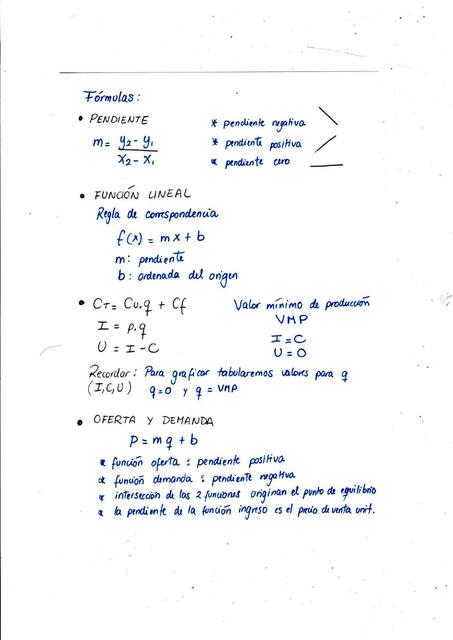 Fórmulas:
• PENDIENTE
m = y2 - y1 / x2 - x1
* pendiente negativa
* pendiente positiva
* pendiente cero
• FUNCIÓN LINEAL
Regla de correspondencia
f(x) = mx + b
m: pendiente
b: ordenada del origen
• CT = Cu.q + Cf
I = p.q
U = I - C
Valor mínimo de producción
VMP
I = C
U = 0
Recordar: Para graficar tabularemos valores para q
(I,C,U) q=0 y q = VMP
• OFERTA Y DEMANDA
P = mq + b
* función oferta : pendiente positiva
* función demanda : pendiente negativa
* intersección de las 2 funciones originan el punto de equilibrio
* la pendiente de la función ingreso es el precio de venta unit.